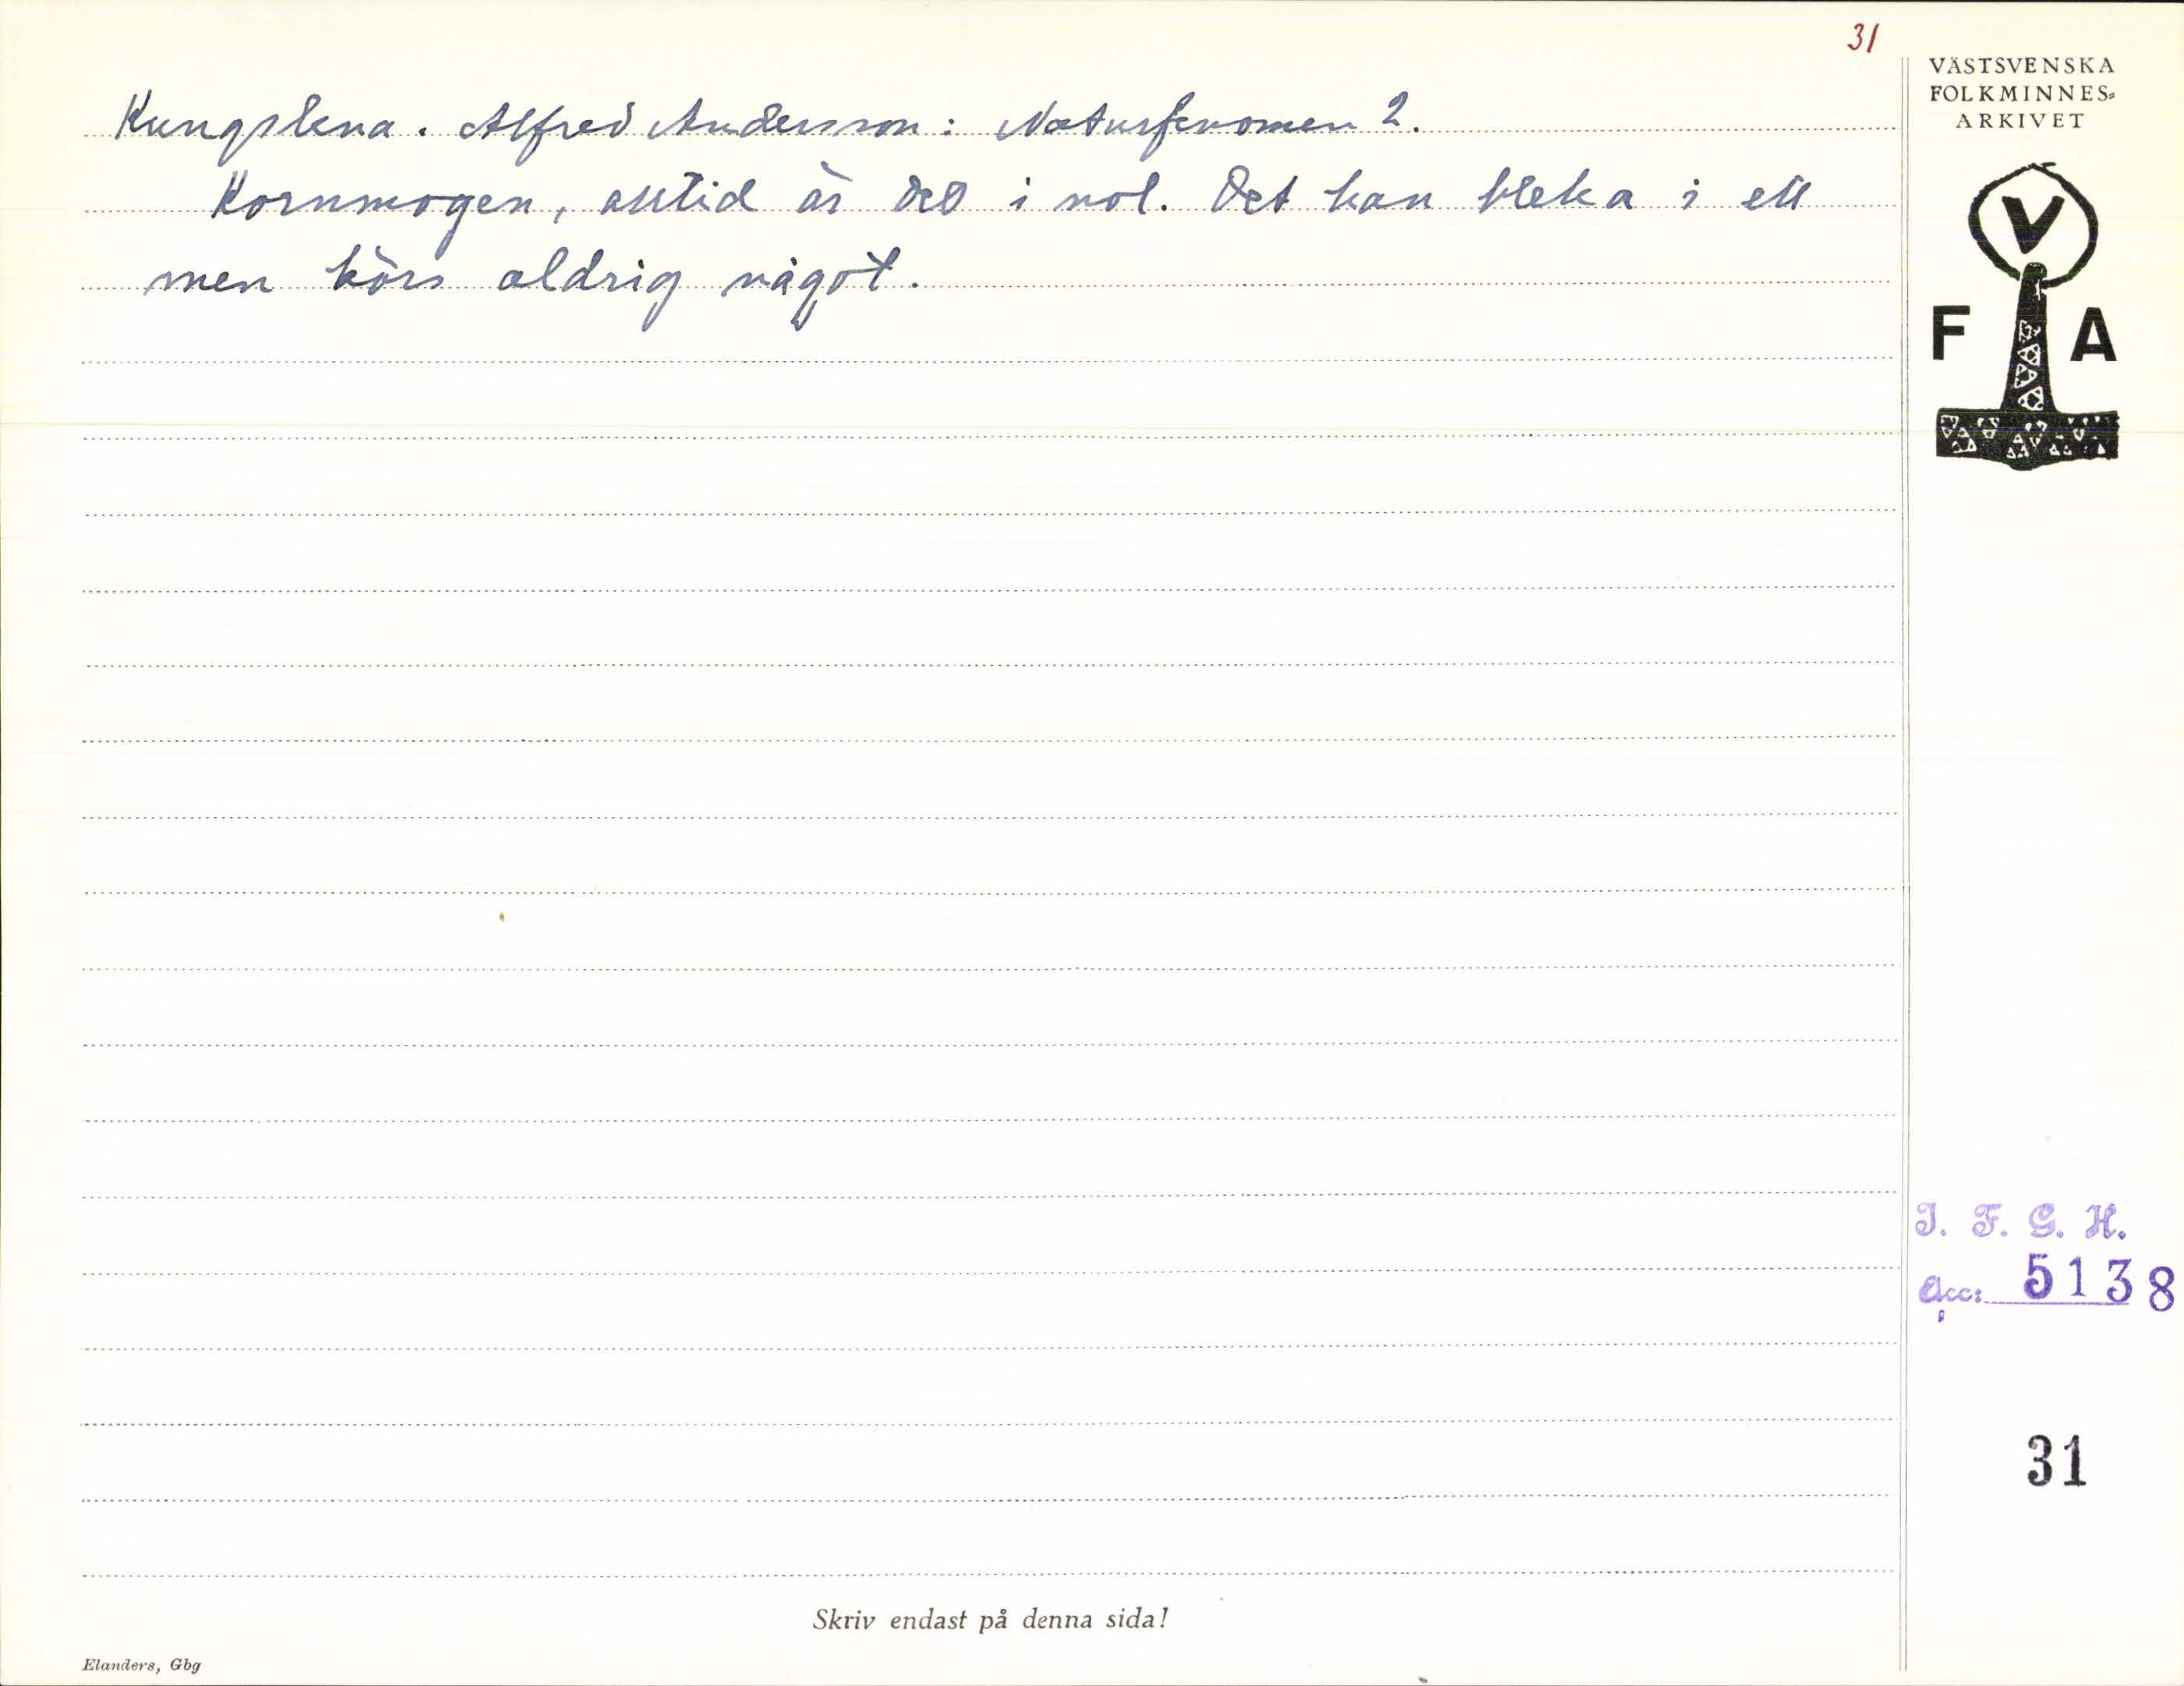 31
VÄSTSVENSKA
FOLKMINNES=
ARKIVET
Kungslena. Alfred Andersson: Naturfenomen 2.
Kornmogen, alltid är det i nol. Det kan bleka i ett
men hörs aldrig något.
V
F A
I. F. G. H.
Acc: 5138
31
Skriv endast på denna sida!
Elanders, Gbg